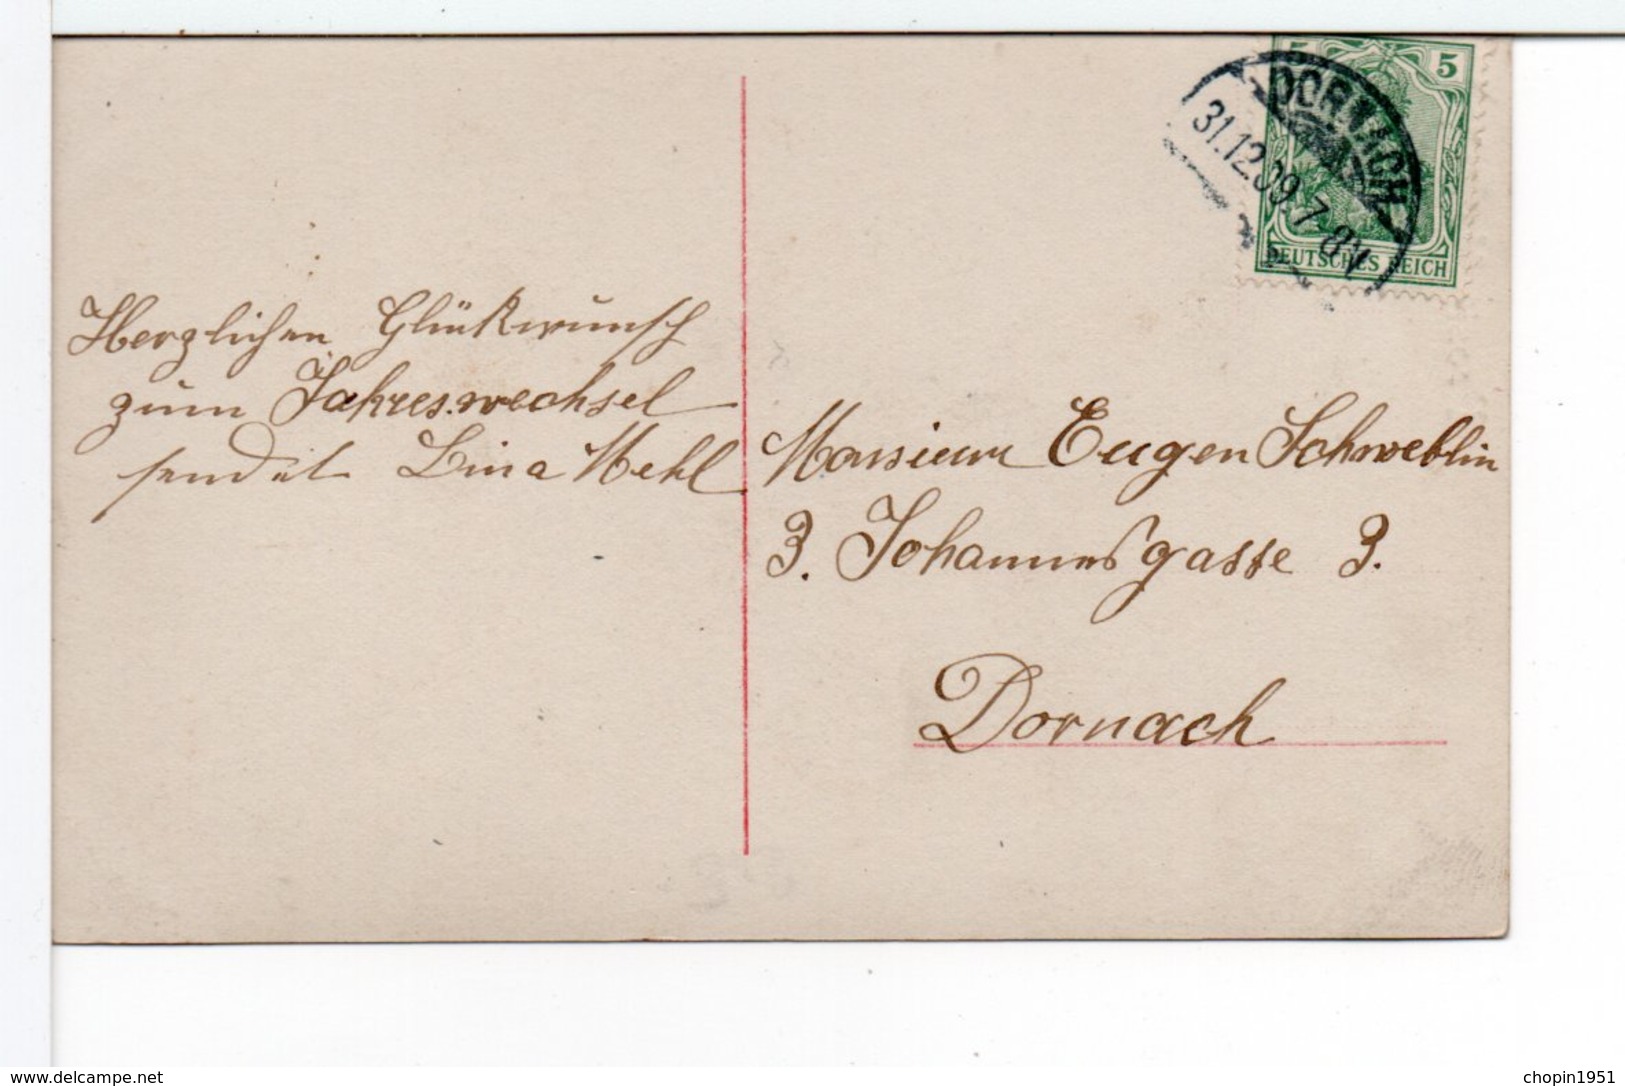 5 5
DORNACH
31.12.09.7-8V.
DEUTSCHES REICH
Herzlichen Glückwunsch
zum Jahreswechsel
sendet Lina Mehl
Monsieur Eugen Schweblin
3. Johannesgasse 3.
Dornach
www.delcampe.net
chopin1951